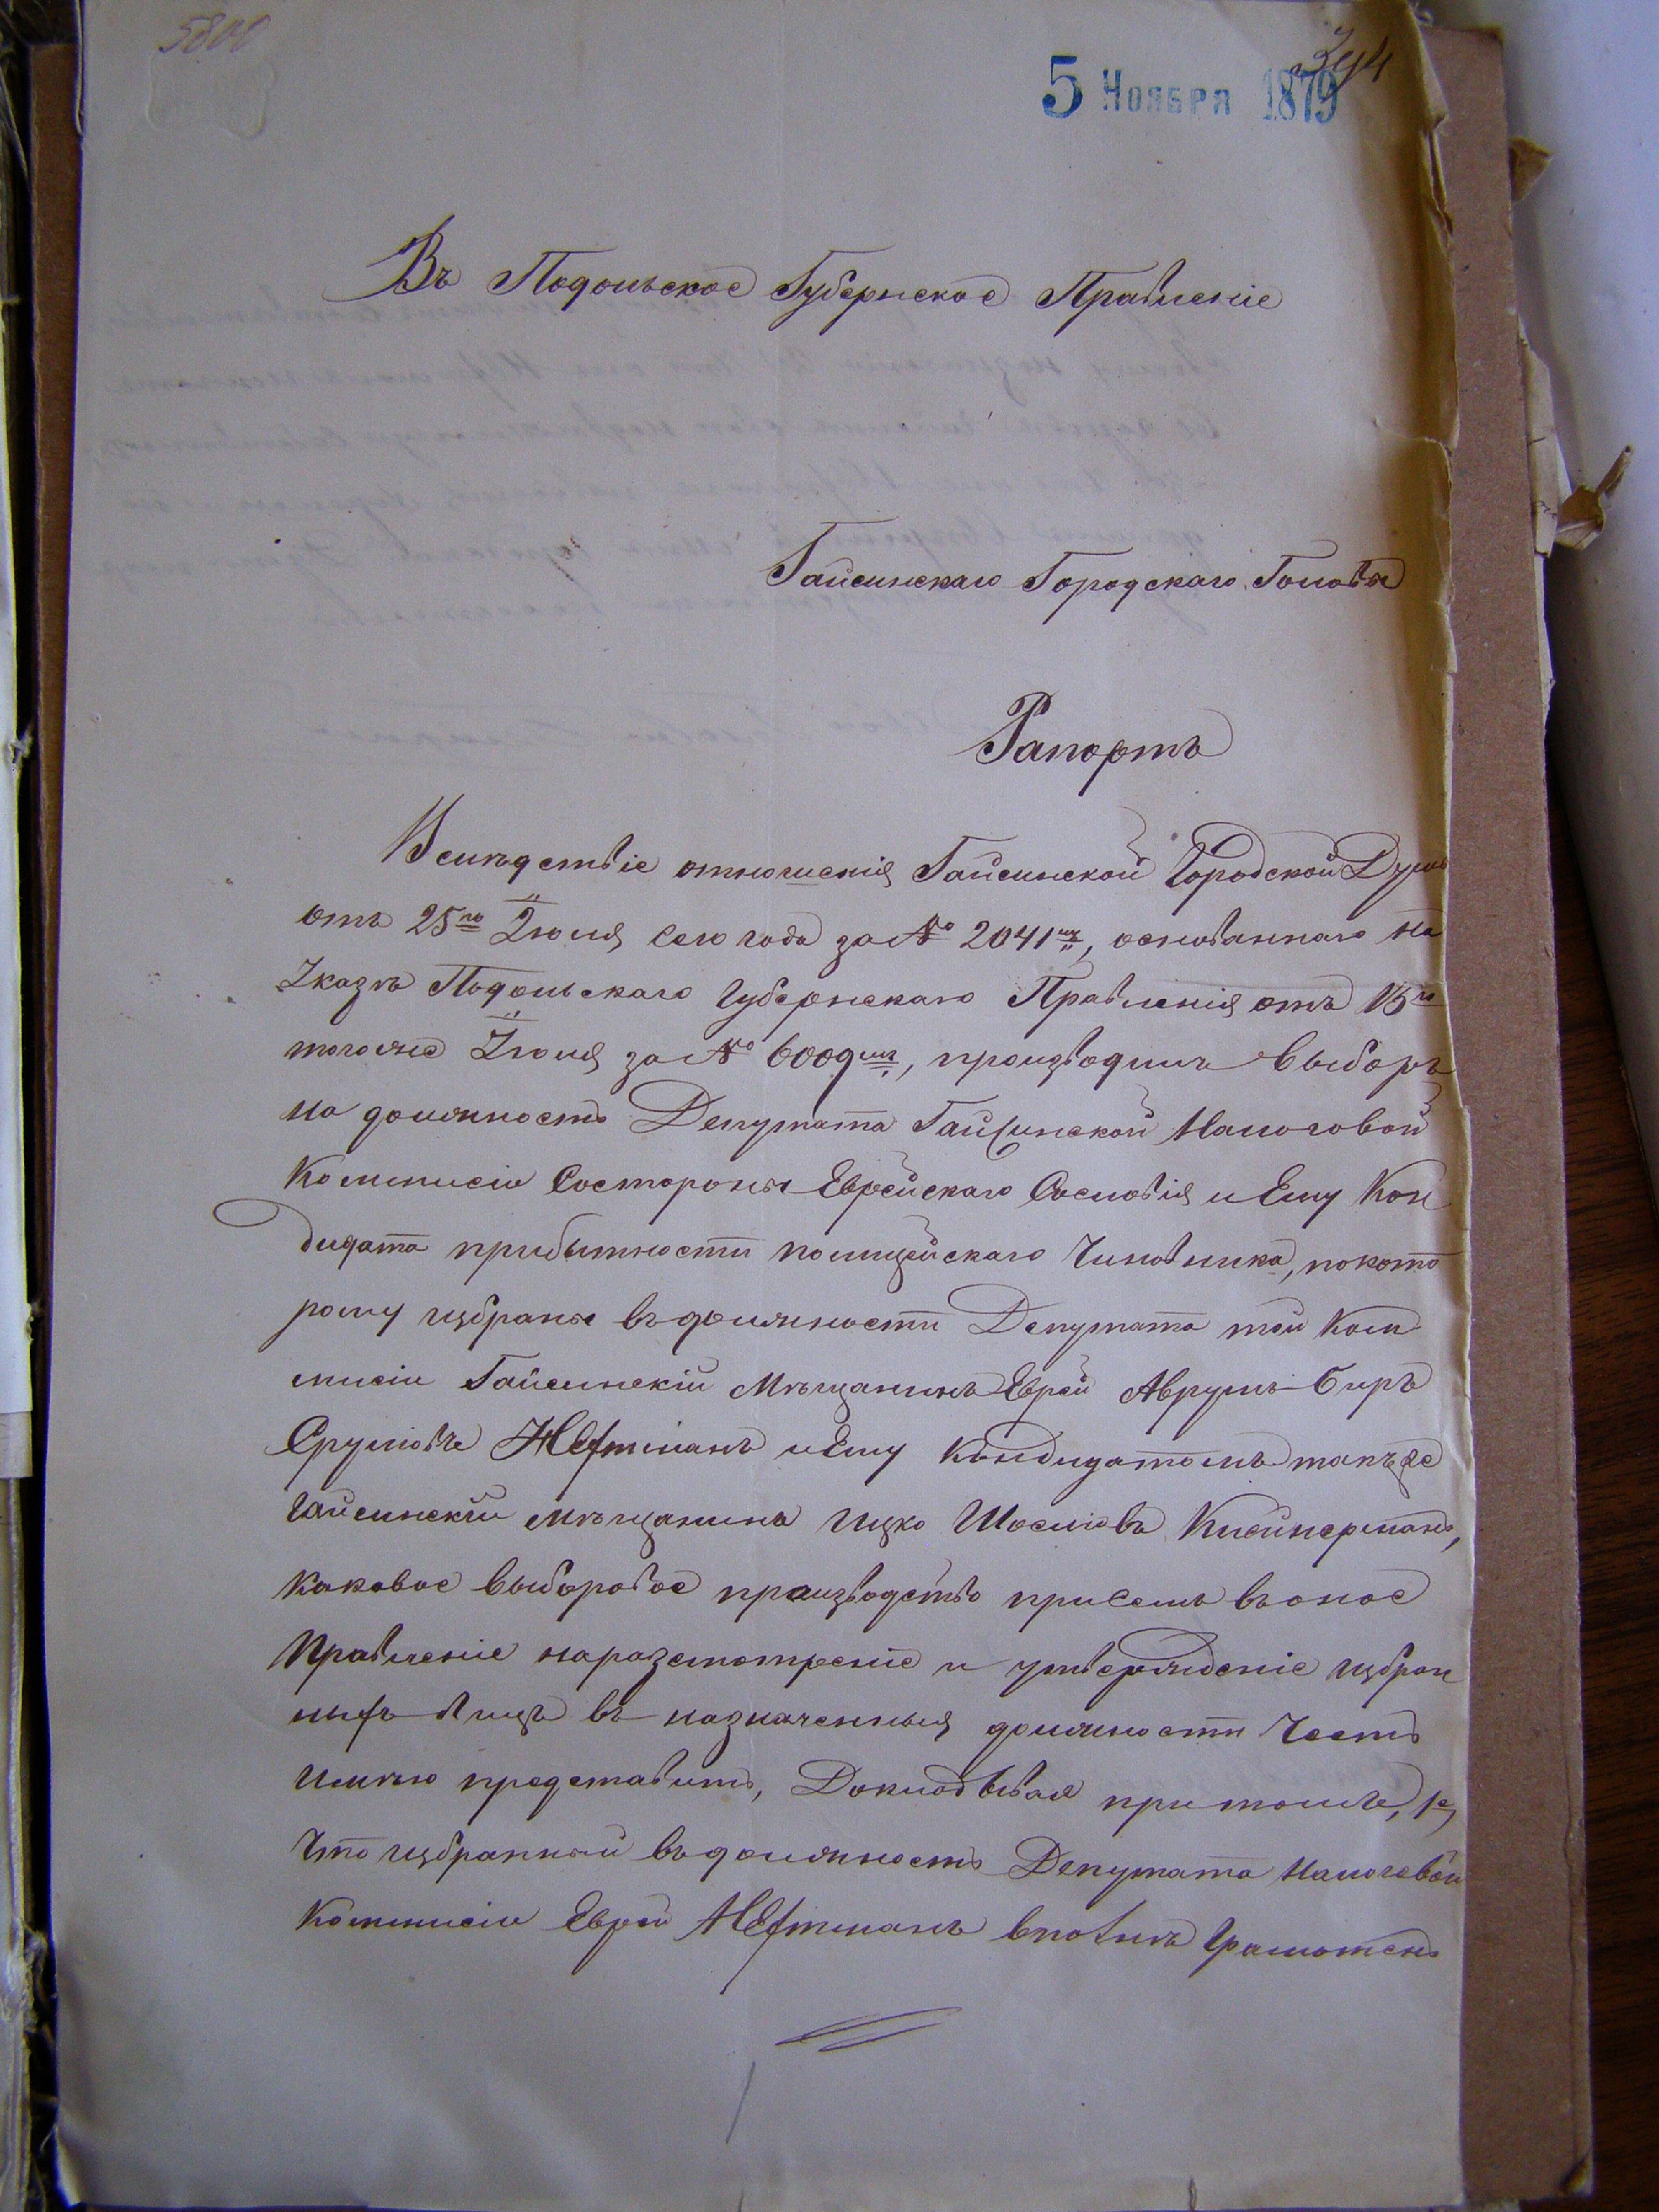 5800
5 Ноября 1879
Въ Подольское Губернское Правленіе
Гайсинскаго Городскаго Головы
Рапортъ
Вслѣдствіе отношенія Гайсинской Городской Думы
отъ 25го Іюля сего года за № 2041мъ, основаннаго на
Указѣ Подольскаго Губернскаго Правленія отъ 15го
тогоже Іюля за № 6009мъ, производилъ выборъ
на должность Депутата Гайсинской Налоговой
Коммисіи состороны Еврейскаго Сословія и Ему Кан
дидата прибытности полицейскаго Чиновника, покото
рому избраны въ должности Депутата той Ком
мисіи Гайсинскій Мѣщанинъ Еврей Аврумъ Беръ
Срулiовъ Нефтманъ и Ему Кандидатомъ такъже
Гайсинскій мѣщанинъ Ицко Шосліовъ Клейнерманъ,
каковое выборовое производство присемъ въ оное
Правленіе наразсмотреніе и утвержденіе избран
ныхъ лицъ въ назначенныя должности честь
имѣю представить, Докладывая притомъ, 1е,
Что избранный въ должность Депутата Налоговой
Коммисіи Еврей Нефтманъ вполнѣ Грамотенъ